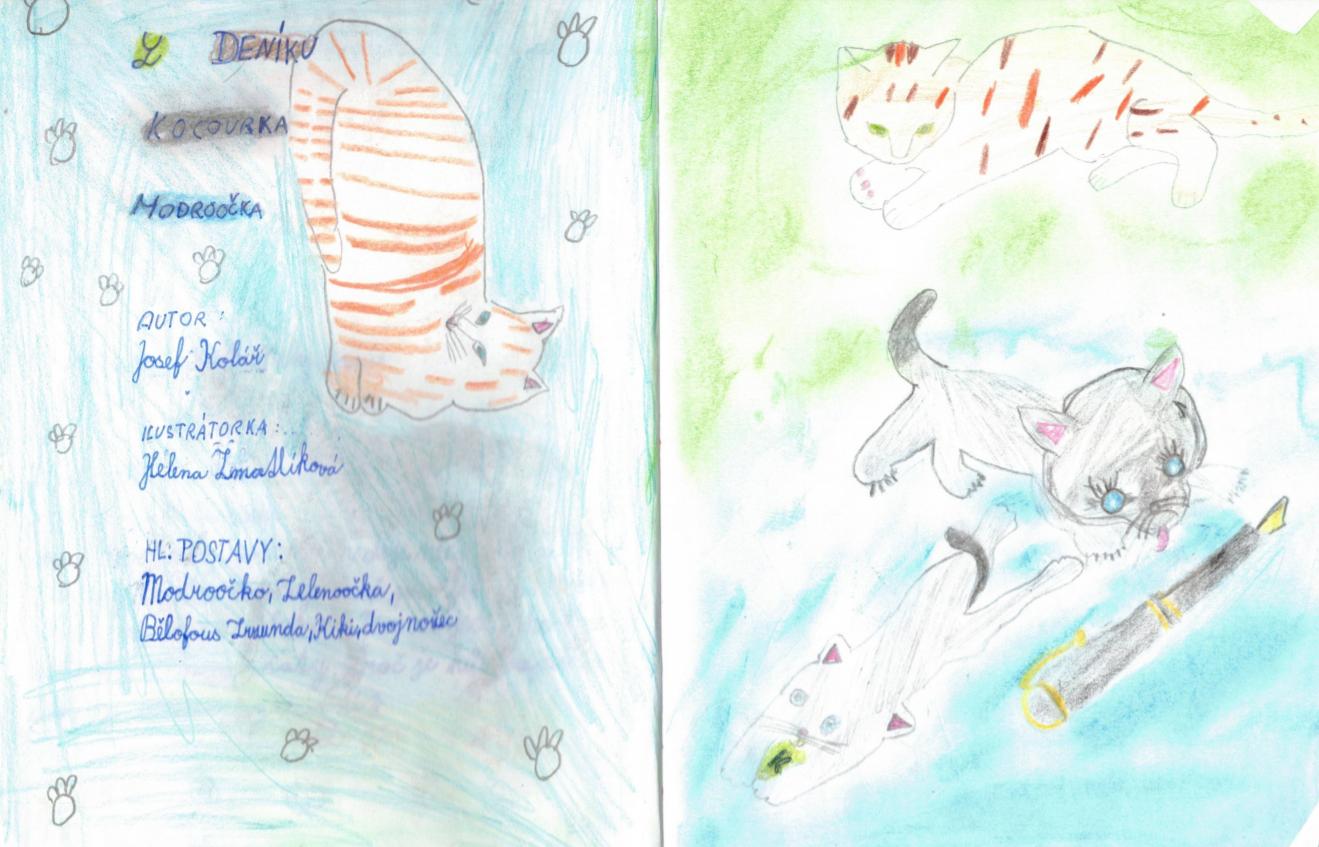 Z DENÍKU
KOCOURKA
MODROOČKA
AUTOR:
Josef Kolář
ILUSTRÁTORKA:
Helena Zmatlíková
HL. POSTAVY:
Modroočko, Zelenoočka,
Bělofous Zrzunda, Kiki, dvojnožec